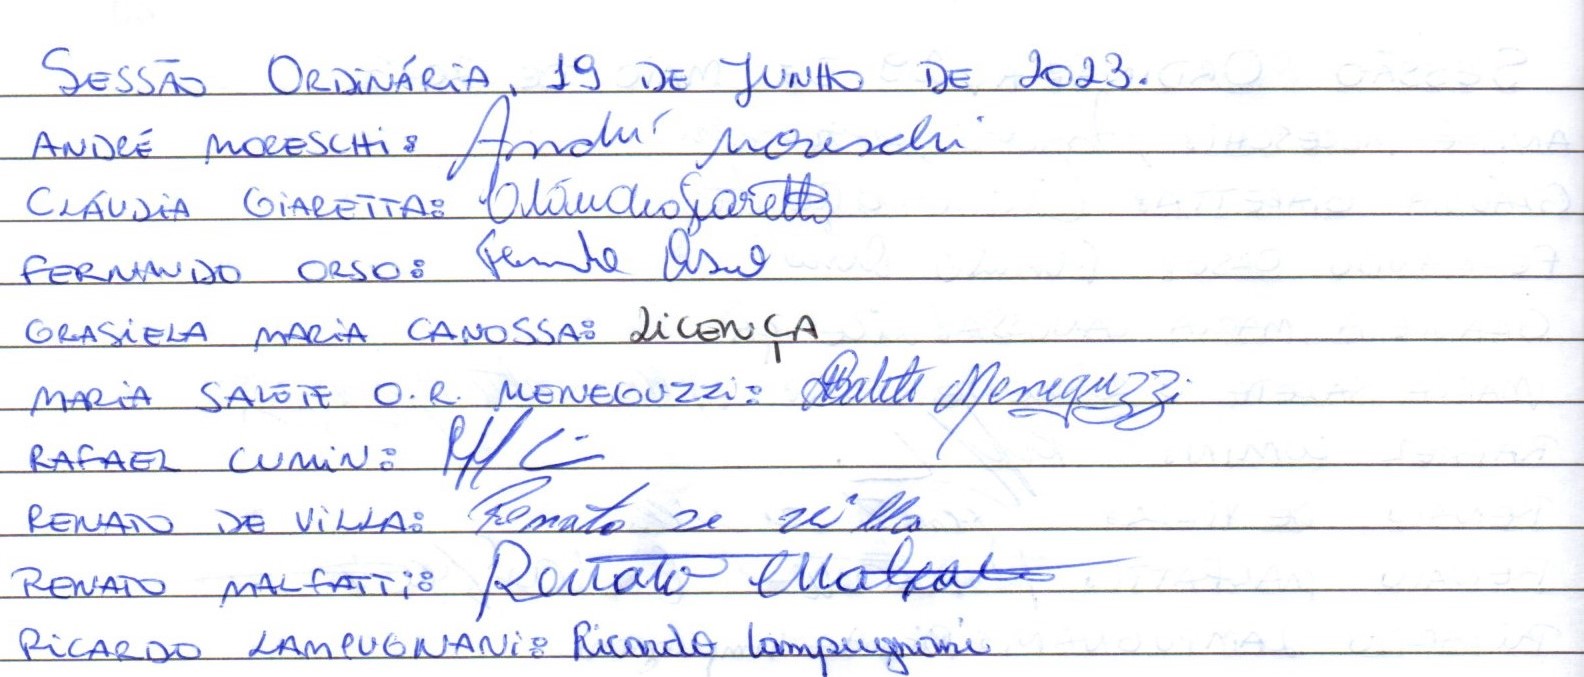 SESSÃO ORDINÁRIA, 19 DE JUNHO DE 2023.
ANDRÉ MORESCHI: André Moreschi
CLÁUDIA GIARETTA: Cláudia Giaretta
FERNANDO ORSO: Fernando Orso
GRASIELA MARIA CANOSSA: LICENÇA
MARIA SALETE O.R. MENEGUZZI: Salete Meneguzzi
RAFAEL CUMIN:
RENATO DE VILLA: Renato de Villa
RENATO MALFATTI: Renato Malfatti
RICARDO LAMPUGNANI: Ricardo Lampugnani